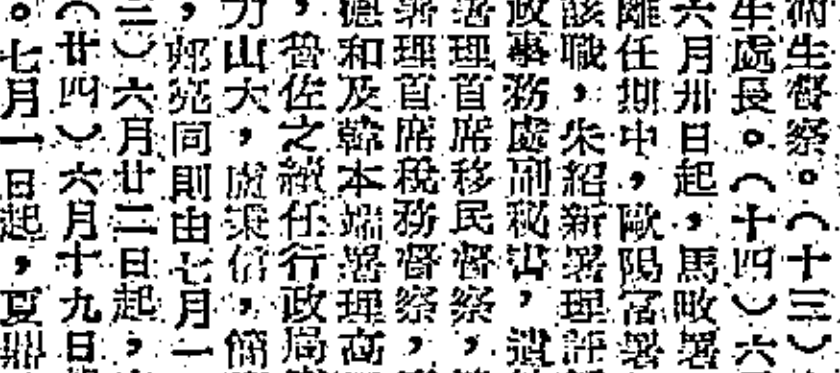 衛生督察。（十三）
生處長。（十四）六
六月卅日起，馬 署
離任 中，歐陽富署
該職，朱紹新署理評
政事務處副秘書，遺
署理首席移民督察，
署理首席稅務督察，
德和及韓本端署理商
，曾佐之續任行政局
力山大，盧秉信，簡
，郊亮同則由七月一
三）六月廿二日起，
（廿四）六月十九日
。七月一日起，夏鼎